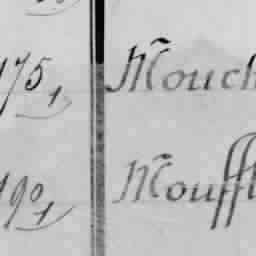 175, 1 Mouch
190, 1 Mouffl